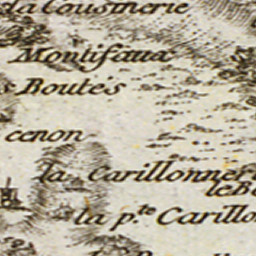 la Cousinerie
Montifaux
Boutés
cenon
la Carillonneri
le B
la p.te Carillo